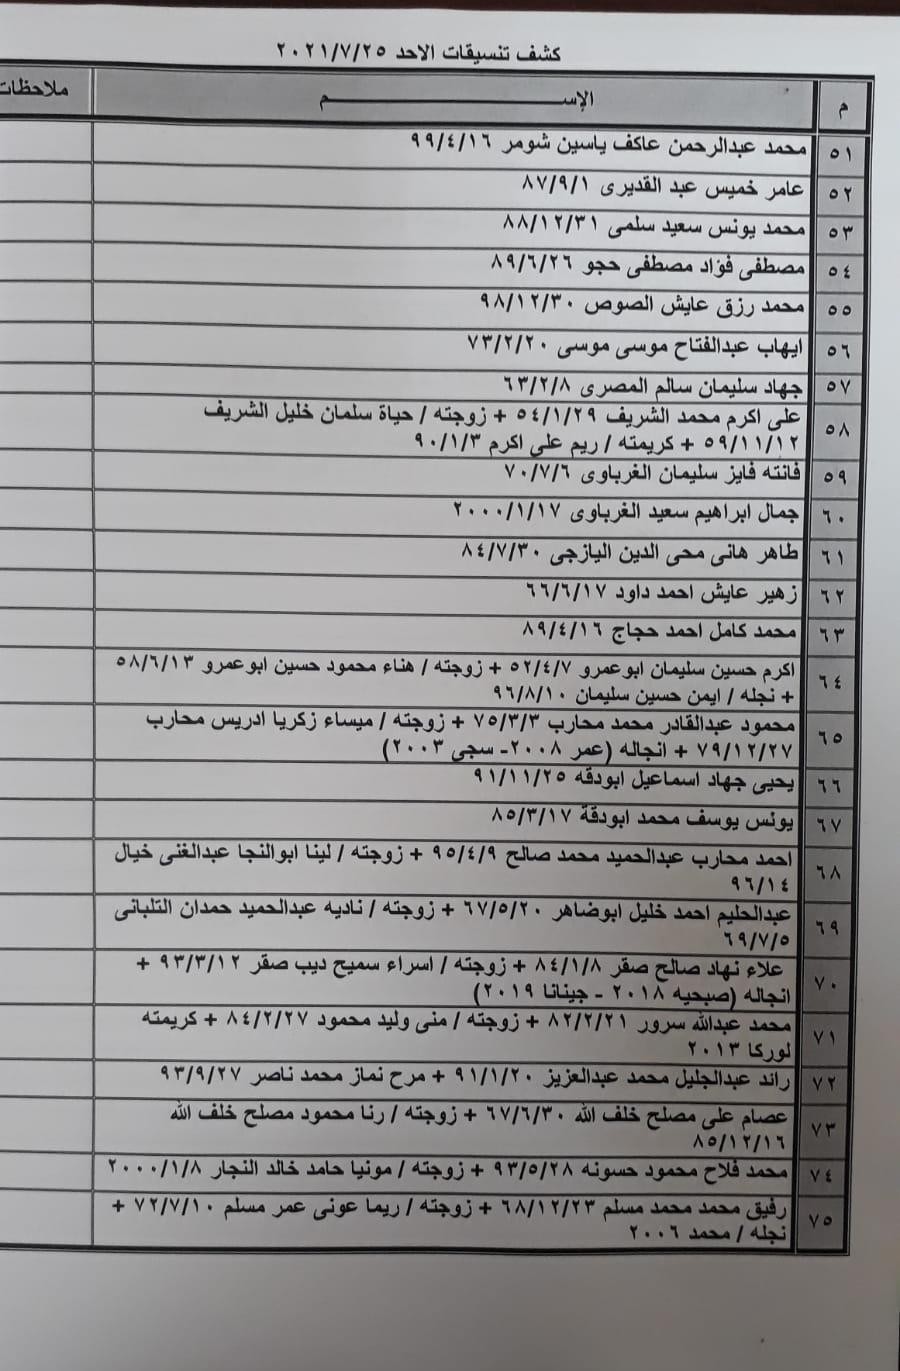 كشف تنسيقات الاحد ٢٠٢١/٧/٢٥
م الإســـــم ملاحظات
٥١ محمد عبدالرحمن عاكف ياسين شومر ٩٩/٤/١٦
٥٢ عامر خميس عبد القديرى ٨٧/٩/١
٥٣ محمد يونس سعيد سلمى ٨٨/١٢/٣١
٥٤ مصطفى فؤاد مصطفى حجو ٨٩/٦/٢٦
٥٥ محمد رزق عايش الصوص ٩٨/١٢/٣٠
٥٦ ايهاب عبدالفتاح موسى موسى ٧٣/٢/٢٠
٥٧ جهاد سليمان سالم المصرى ٦٣/٢/٨
٥٨ على اكرم محمد الشريف ٥٤/١/٢٩ + زوجته / حياة سلمان خليل الشريف
٥٩/١١/١٢ + كريمته / ريم على اكرم ٩٠/١/٣
٥٩ فاتنه فايز سليمان الغرباوى ٧٠/٧/٦
٦٠ جمال ابراهيم سعيد الغرباوى ٢٠٠٠/١/١٧
٦١ طاهر هانى محى الدين اليازجى ٨٤/٧/٣٠
٦٢ زهير عايش احمد داود ٦٦/٦/١٧
٦٣ محمد كامل احمد حجاج ٨٩/٤/١٦
٦٤ اكرم حسين سليمان ابوعمرو ٥٢/٤/٧ + زوجته / هناء محمود حسين ابوعمرو ٥٨/٦/١٣
+ نجله / ايمن حسين سليمان ٩٦/٨/١٠
٦٥ محمود عبدالقادر محمد محارب ٧٥/٣/٣ + زوجته / ميساء زكريا ادريس محارب
٧٩/١٢/٢٧ + انجاله (عمر ٢٠٠٨- سجى ٢٠٠٣)
٦٦ يحيى جهاد اسماعيل ابودقه ٩١/١١/٢٥
٦٧ يونس يوسف محمد ابودقة ٨٥/٣/١٧
٦٨ احمد محارب عبدالحميد محمد صالح ٩٥/٤/٩ + زوجته / لينا ابوالنجا عبدالغنى خيال
٩٦/١٤
٦٩ عبدالحليم احمد خليل ابوضاهر ٦٧/٥/٢٠ + زوجته / ناديه عبدالحميد حمدان التلبانى
٦٩/٧/٥
٧٠ علاء نهاد صالح صقر ٨٤/١/٨ + زوجته / اسراء سميح ديب صقر ٩٣/٣/١٢ +
انجاله (صبحيه ٢٠١٨ - جينانا ٢٠١٩)
٧١ محمد عبدالله سرور ٨٢/٢/٢١ + زوجته / منى وليد محمود ٨٤/٢/٢٧ + كريمته
لوركا ٢٠١٣
٧٢ رائد عبدالجليل محمد عبدالعزيز ٩١/١/٢٠ + مرح نماز محمد ناصر ٩٣/٩/٢٧
٧٣ عصام على مصلح خلف الله ٦٧/٦/٣٠ + زوجته / رنا محمود مصلح خلف الله
٨٥/١٢/١٦
٧٤ محمد فلاح محمود حسونه ٩٣/٥/٢٨ + زوجته / مونيا حامد خالد النجار ٢٠٠٠/١/٨
٧٥ رفيق محمد محمد مسلم ٦٨/١٢/٢٣ + زوجته / ريما عونى عمر مسلم ٧٢/٧/١٠ +
نجله / محمد ٢٠٠٦